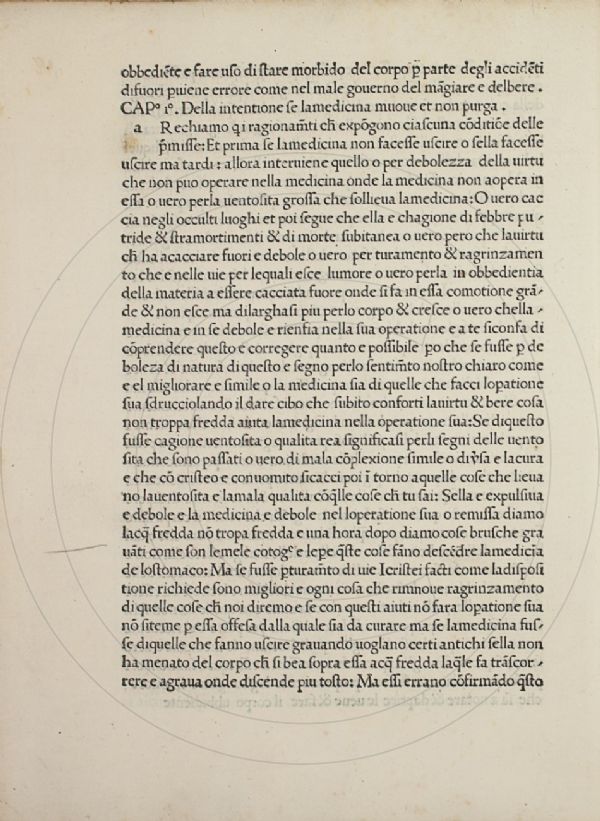 obbediẽte e fare uso di stare morbido del corpo ꝑ parte degli accidẽti
difuori puiene errore come nel male gouerno del mãgiare e delbere .
CAPº iº. Della intentione se lamedicina muoue et non purga .
a Rechiamo qi ragionam̃ti ch̃ expõgono ciascuna cõditiõe delle
p̃misse: Et prima se lamedicina non facesse uscire o sella facesse
uscire ma tardi : allora interuiene quello o per debolezza della uirtu
che non puo operare nella medicina onde la medicina non aopera in
essa o uero perla uentosita grossa che sollieua lamedicina: O uero cac
cia negli occulti luoghi et poi segue che ella e chagione di febbre pu-
tride & stramortimenti & di morte subitanea o uero pero che lauirtu
ch̃ ha acacciare fuori e debole o uero per turamento & ragrinzamen
to che e nelle uie per lequali esce lumore o uero perla in obbedientia
della materia a essere cacciata fuore onde si fa in essa comotione grã-
de & non esce ma dilarghasi piu perlo corpo & cresce o uero chella
medicina e in se debole e riensia nella sua operatione e a te siconfa di
cõprendere questo e corregere quanto e possibile ꝑo che se fusse ꝑ de
boleza di natura di questo e segno perlo sentim̃to nostro chiaro come
e el migliorare e simile o la medicina sia di quelle che facci lopatione
sua sdrucciolando il dare cibo che subito conforti lauirtu & bere cosa
non troppa fredda aiuta lamedicina nella operatione sua: Se diquesto
fusse cagione uentosita o qualita rea significasi perli segni delle uento
sita che sono passati o uero di mala cõplexione simile o di‍ũsa e lacura
e che cõ cristeo e conuomito sicacci poi ĩ torno aquelle cose che lieua
no lauentosita e lamala qualita cõq̃lle cose ch̃ tu sai: Sella e expulsiua
e debole e la medicina e debole nel loperatione sua o remissa diamo
lacq̃ fredda nõ tropa fredda e una hora dopo diamo cose brusche gra
uãti come son lemele cotogᵉ e lepe q̃ste cose fãno descẽdre lamedicia
de lostomaco: Ma se fusse ꝑturam̃to di uie Icristei facti come ladisposi
tione richiede sono migliori e ogni cosa che rimuoue ragrinzamento
di quelle cose ch̃ noi diremo e se con questi aiuti nõ fara lopatione sua
nõ siteme ꝑ essa offesa dalla quale sia da curare ma se lamedicina fus-
se diquelle che fanno uscire grauando uoglano certi antichi sella non
ha menato del corpo ch̃ si bea sopra essa acq̃ fredda laq̃le fa trãscor-
rere e agraua onde discende piu tosto: Ma essi errano cõfirmãdo q̃sto